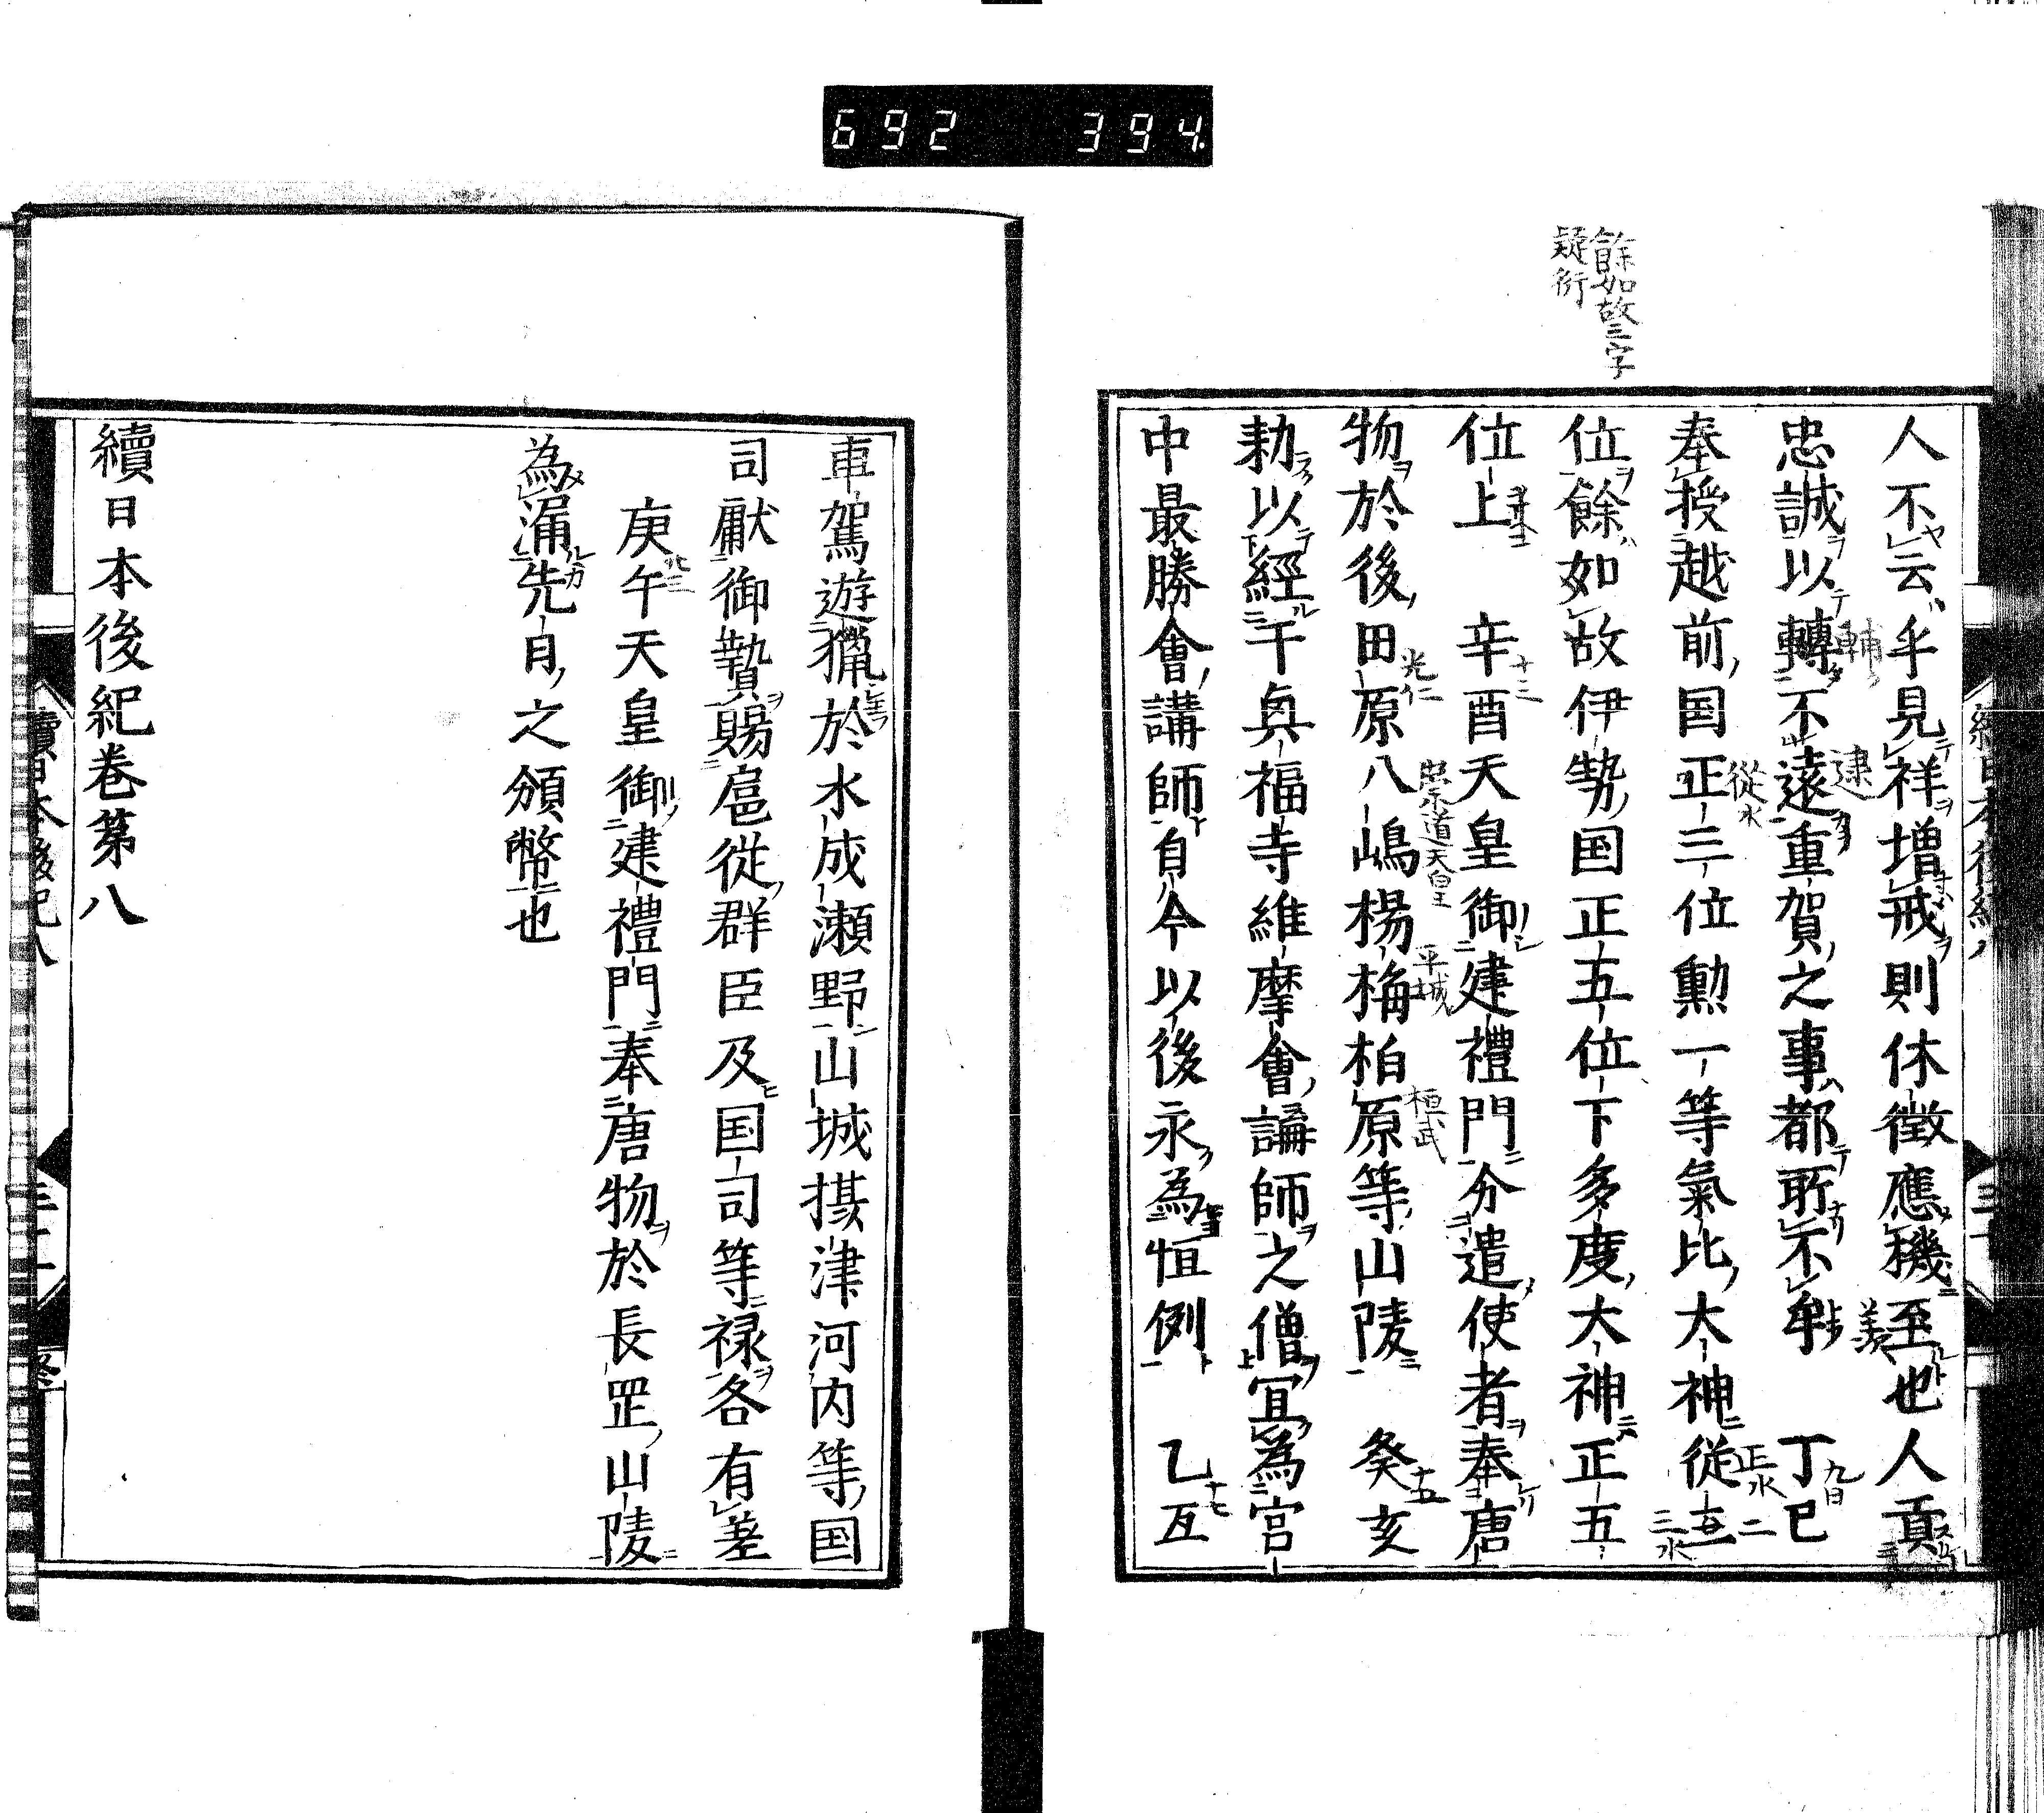 692 394
餘如故三字
疑衍
人不云乎見祥増戒則休徴應機至也人貢
忠誠以轉不遠重賀之事都所不牟 丁巳
奉授越前国正三位勲一等氣比大神從三
位餘如故伊勢国正五位下多度大神正五
位上 辛酉天皇御建禮門分遣使者奉唐
物於後田原八嶋楊梅柏原等山陵 癸亥
勅以經干興福寺維摩會講師之僧冝為宮
中最勝會講師自今以後永為恒例 乙亙
輔
建
美
九日
從水
正水
二
三水
十三
光仁
崇道天皇
平城
桓武
十五
十七
車駕遊獵於水成瀬野山城摂津河内等国
司獻御贄賜扈從群臣及国司等禄各有差
庚午天皇御建禮門奉唐物於長罡山陵
為漏先日之頒幣也
續日本後紀巻第八